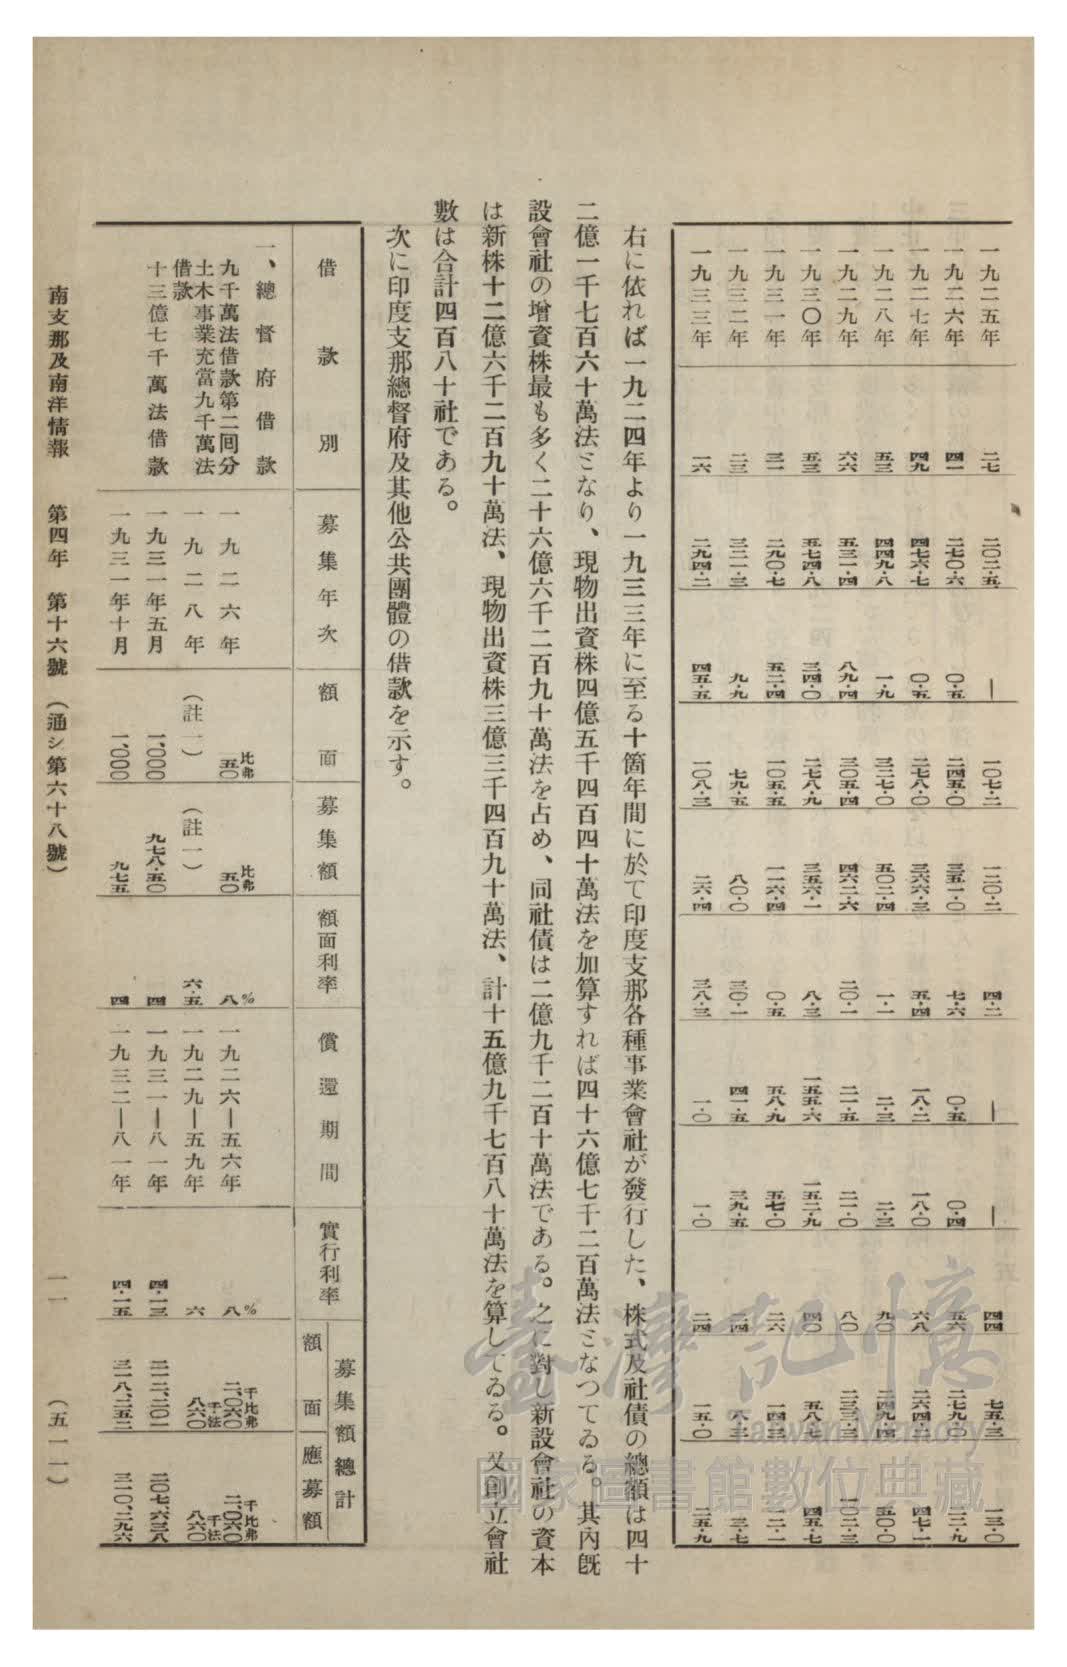 一九二五年 二七 二〇二・五 — 一〇七・二 一二〇・二 四・二 — — 四四 七五・三 一三・〇
一九二六年 四一 二七〇・六 〇・五 二四五・〇 三五一・〇 七・六 〇・五 〇・四 五六 二七九・〇 一二・九
一九二七年 四九 四七六・七 〇・五 二七八・〇 三六六・三 五・四 一八・二 一八・〇 六八 二六四・二 四七・一
一九二八年 五三 四四九・八 一・九 三二七・〇 五〇二・四 一・一 二・三 二・三 九〇 二四九・四 五〇・〇
一九二九年 六六 五三一・四 八九・四 三〇五・四 四六二・六 二〇・一 二一・五 二一・〇 八〇 二三三・三 一〇二・三
一九三〇年 五三 五七四・八 三四・〇 二七八・九 三五六・一 八・三 一五五・六 一五二・九 四〇 五八・七 四五・七
一九三一年 三一 二九〇・七 五二・四 一〇五・五 一一六・四 〇・五 五八・九 五七・〇 二六 一四・三 一二・一
一九三二年 二三 三二一・三 九・九 七九・五 八〇・〇 三〇・一 四一・五 三九・五 二四 八・三 三・七
一九三三年 一六 二九四・二 四五・五 一〇八・三 二六・四 三八・三 一・〇 一・〇 二四 一五・〇 二五・九
右に依れば一九二四年より一九三三年に至る十箇年間に於て印度支那各種事業會社が發行した、株式及社債の總額は四十
二億一千七百六十萬法ミなり、現物出資株四億五千四百四十萬法を加算すれば四十六億七千二百萬法ミなつてゐる。其內既
設會社の增資株最も多く二十六億六千二百九十萬法を占め、同社債は二億九千二百十萬法である。之に對し新設會社の資本
は新株十二億六千二百九十萬法、現物出資株三億三千四百九十萬法、計十五億九千七百八十萬法を算してゐる。又創立會社
數は合計四百八十社である。
次に印度支那總督府及其他公共團體の借款を示す。
借款別 募集年次 額面 募集額 額面利率 償還期間 實行利率 募集額總計 額面 應募額
一、總督府借款
九千萬法借款第二囘分 一九二六年 比弗五〇 比弗五〇 八% 一九二六—五六年 八% 千比弗二、〇六〇 千比弗二、〇六〇
土木事業充當九千萬法
借款 一九二八年 (註一) (註一) 六・五 一九二九—五九年 六 千法八六〇 千法八六〇
十三億七千萬法借款 一九三一年五月 一、〇〇〇 九七八・五〇 四 一九三一—八一年 四・一三 二一二、二〇一 二〇七、六三八
一九三一年十月 一、〇〇〇 九七五 四 一九三二—八一年 四・一五 三一八、二五二 三一〇、二九六
南支那及南洋情報 第四年 第十六號 (通シ第六十八號) 一一 (五一一)
臺灣記憶
Taiwan Memory
國家圖書館數位典藏